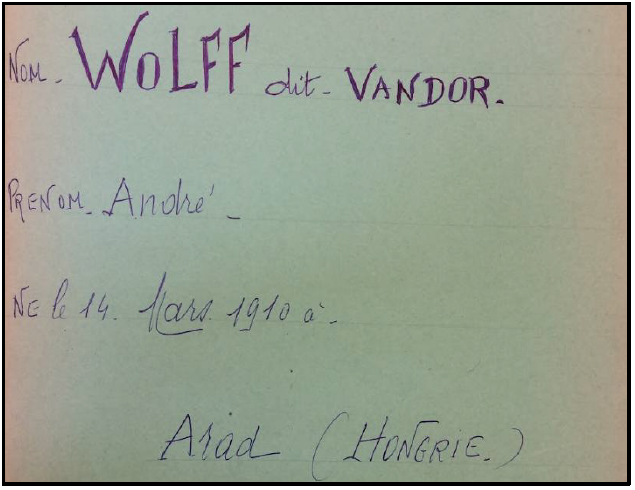 NOM. WOLFF dit. VANDOR.
PRENOM. André.
NE le 14. Mars. 1910 à.
Arad (HONGRIE.)